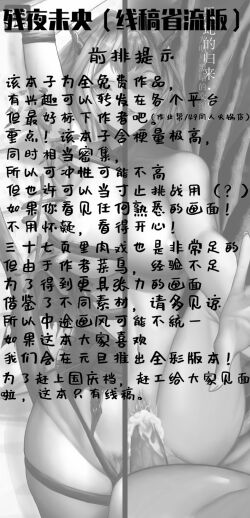 残夜未央（线稿省流版）
的归来
前排提示
该本子为全免费作品，
有兴趣可以转发在各个平台
但最好标下作者吧
重点！该本子含梗量极高，
同时相当密集，
所以可冲性可能不高
但也许可以当丁止挑战用（？）
如果你看见任何熟悉的画面！
不用怀疑，看得开心！
三十七页里肉戏也是非常足的
但由于作者菜鸟，经验不足
为了得到更具张力的画面
借鉴了不同素材，请多见谅
所以中途画风可能不统一
如果这本大家喜欢
我们会在元旦推出全彩版本！
为了赶上国庆档，赶工给大家见面
啦，这本只有线稿。